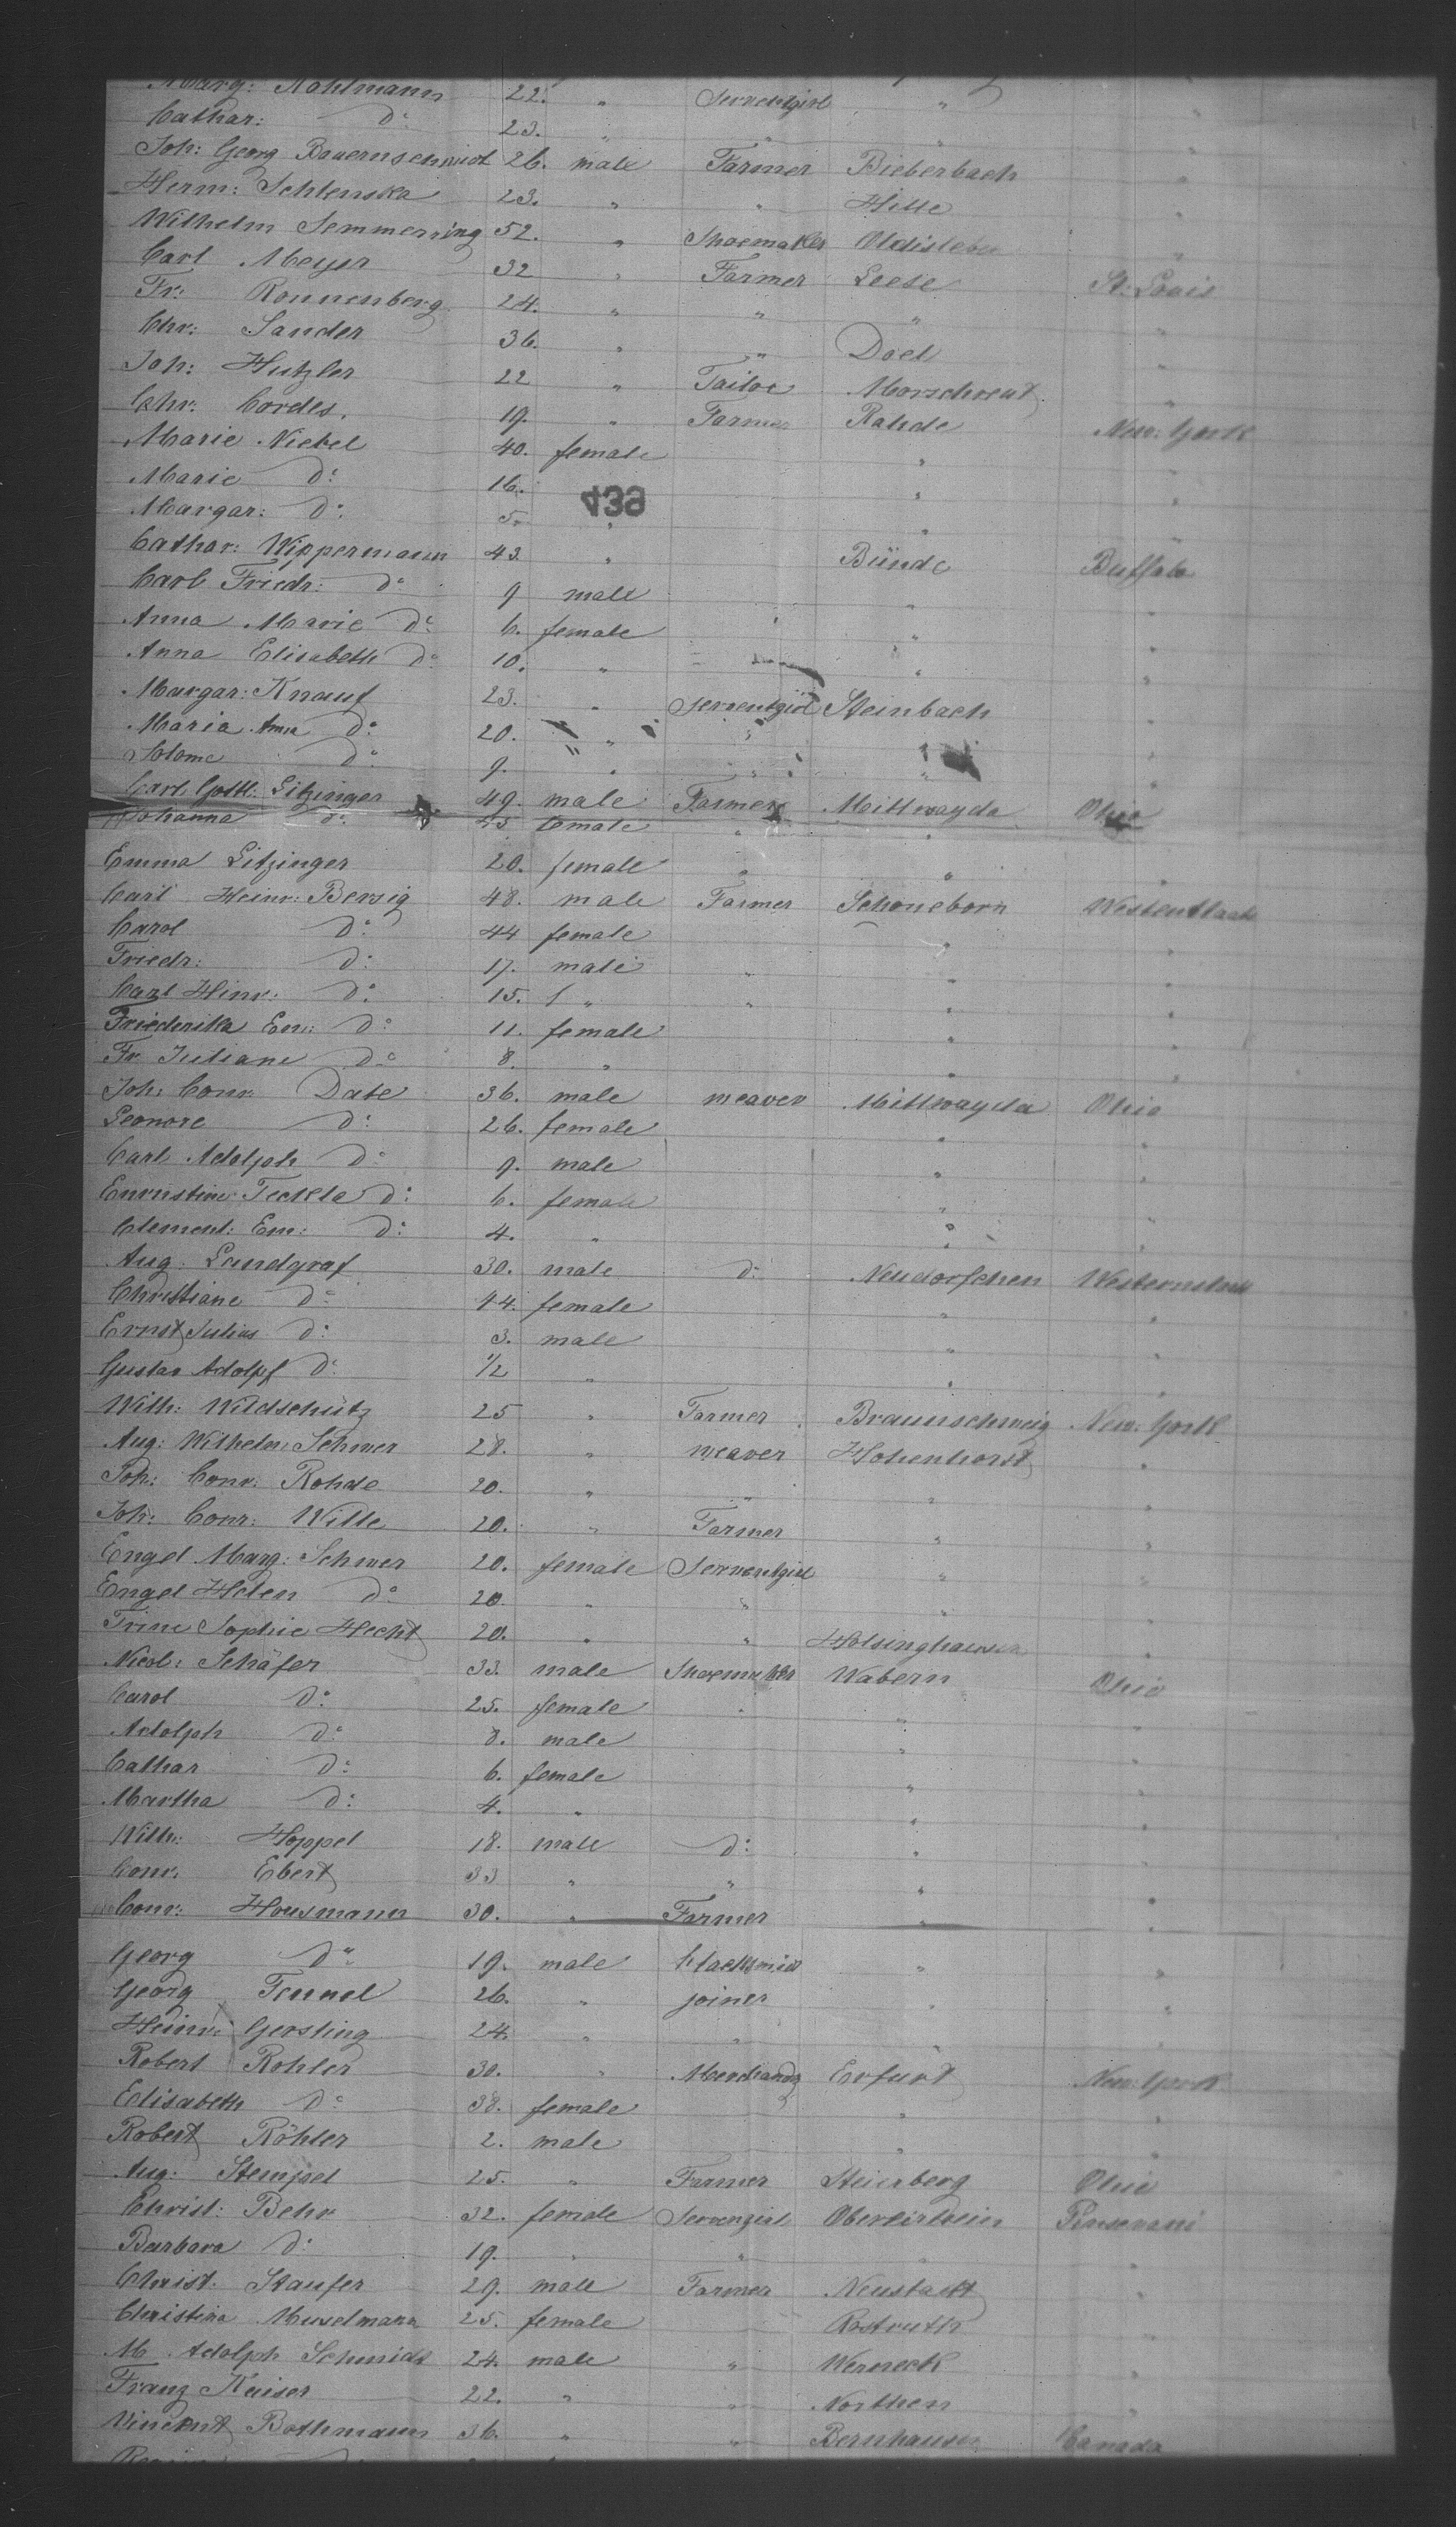 Marg: Kohlmann 22. " Serventgirl "
Cathar: do 23. " " " "
Joh: Georg Bauernschmidt 26. male Farmer Bieberbach "
Herm: Schlenska 23. " " Hille "
Wilhelm Semmerring 52. " Shoemaker Oldisleben "
Carl Meyer 32 " Farmer Leese St: Louis
Fr: Ronnenberg 24. " " " "
Chr: Sander 36. " " Doel "
Joh: Hutzler 22 " Tailor Morschreut "
Chr: Cordes. 19. " Farmer Rahde New: York
Marie Niebel 40. female " "
Marie do 16. " "
439
Margar: do 5. " " "
Cathar: Wippermann 43. " Bünde Buffalo
Carl Friedr: do 9 male " "
Anna Marie do 6. female " "
Anna Elisabeth do 10. " " "
Margar: Knauf 23. " Serventgirl Steinbach "
Maria Anna do 20. " " " "
Solome do 9. " " " "
Carl Gottl: Litzinger 49. male Farmer Mittwayda Ohio
Johanna do 45 female " "
Emma Litzinger 20. female " " "
Carl Heinr: Berzig 48. male Farmer Schoneborn
Carol do 44 female " "
Friedr: do 17. male " " "
Carl Hinr: do 15. " " " "
Friederika Em: do 11. female " "
Fr Juliane do 8. " " "
Joh: Conr: Date 36. male weaver Mittwayda Ohio
Leonore do 26. female " "
Carl Adolph do 9. male " "
Ernustine Teckla do 6. female " "
Clement: Em: do 4. " " "
Aug: Landgraf 30. male do Neudorfchen
Christiane do 44. female " "
Ernst Julius do 3. male " "
Gustav Adolpf do 1/2 " " "
Wilh: Wildschütz 25 " Farmer Braunschweig New: York
Aug: Wilhelm Schwer 28. " weaver Hohenhorst "
Joh: Conr: Rohde 20. " " " "
Joh: Conr: Wille 20. " Farmer " "
Engel Marg: Schwer 20. female Serventgirl " "
Engel Helen do 20. " " " "
Trine Sophie Hecht 20. " " Holsinghausen "
Nicol: Schäfer 33. male Shoemaker Wabern Ohio
Carol do 25. female " " "
Adolph do 8. male " "
Cathar do 6. female " "
Martha do 4. " " "
Wilh: Hoppel 18. male do " "
Conr. Ebert 33 " " " "
Conr: Housmann 30. " Farmer " "
Georg do 19. male blacksmid " "
Georg Fennel 26. " joiner " "
Heinr: Gersting 24. " " " "
Robert Rohler 30. " Merchand Erfurt New: York
Elisabeth do 38. female " "
Robert Röhler 2. male " "
Aug: Stempel 25. " Farmer Steierberg Ohio
Christ: Behr 32. female Servengirl
Barbara do 19. " " " "
Christ: Staufer 29. male Farmer Neustadt "
Christina Muselmann 25. female "
M. Adolph Schmidt 24. male " Werneck "
Franz Kaiser 22. " " Northen "
Vincent Bothmann 36. " " Bernhausen Canada